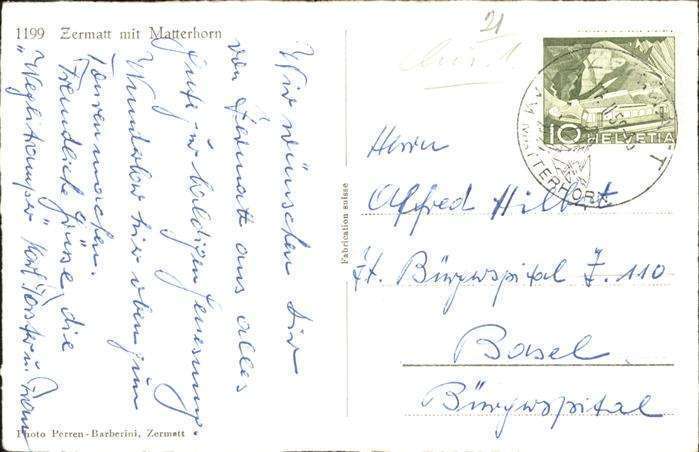 1199 Zermatt mit Matterhorn
Wir wünschen Dir
von Zermatt aus alles
Gute u. baldigen Genesung.
Wunderbar hier oben zum
Tourenmachen.
Freundliche Grüsse, die
"Weglitramper" Karl u. Frau
Photo Perren-Barberini, Zermatt
Fabrication suisse
21
10 HELVETIA
ZERMATT
MATTERHORN
Herrn
Alfred Hilbert
Zt. Bürgerspital Z. 110
Basel
Bürgerspital